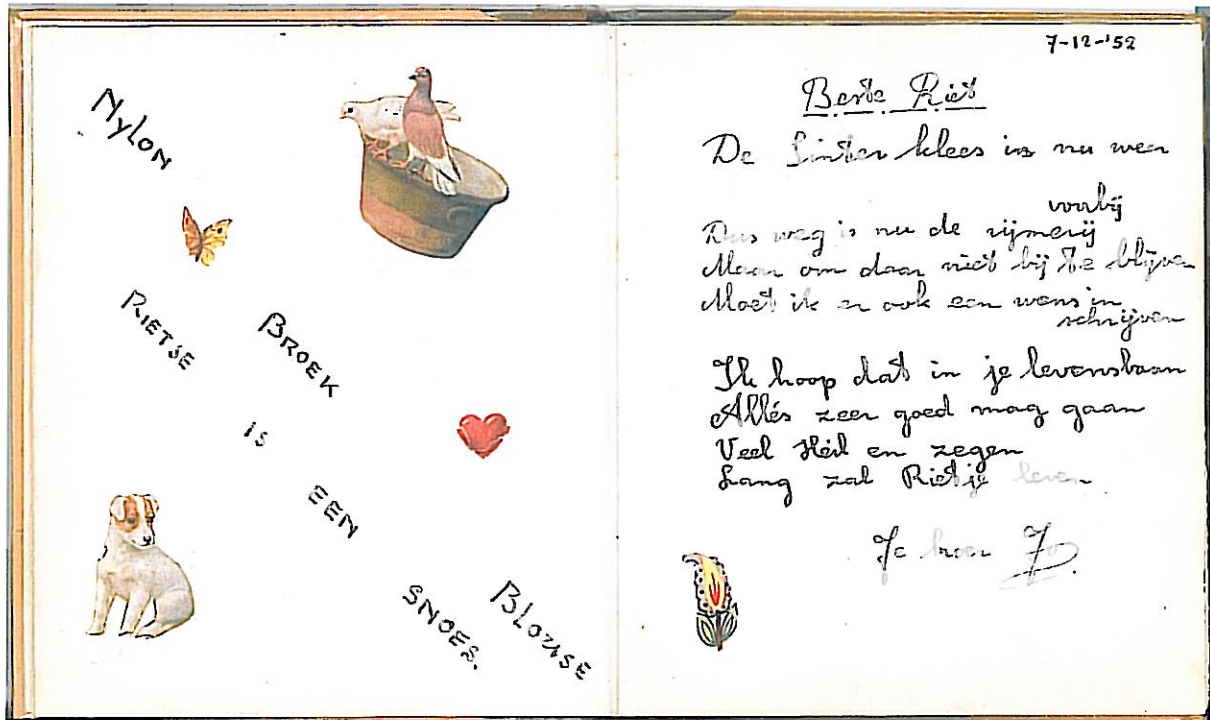 NYLON
BROEK
BLOUSE
RIETSE
IS
EEN
SNOES.
7-12-'52
Beste Riet
De Sinterklees is nu weer
voorbij
Dus weg is nu de rijmerij
Maar om daar niet bij te blijven
Moet ik er ook een wens in
schrijven
Ik hoop dat in je levensbaan
Allés zeer goed mag gaan
Veel Heil en zegen
Lang zal Rietje leven
Je broer Jo.